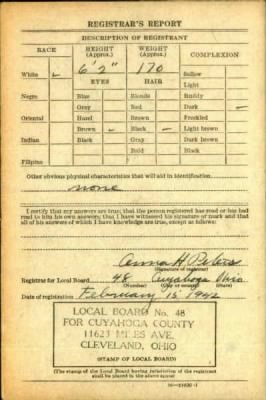 REGISTRAR'S REPORT
DESCRIPTION OF REGISTRANT
RACE HEIGHT (Approx.) WEIGHT (Approx.) COMPLEXION
6'2" 170
White ✓ Sallow
EYES HAIR Light
Negro Blue Blonde Ruddy
Gray Red Dark ✓
Oriental Hazel Brown Freckled
Brown ✓ Black ✓ Light brown
Indian Black Gray Dark brown
Bald Black
Filipino
Other obvious physical characteristics that will aid in identification
none
I certify that my answers are true; that the person registered has read or has had
read to him his own answers; that I have witnessed his signature or mark and that all
of his answers of which I have knowledge are true, except as follows:
Anna H Peters
(Signature of registrar)
Registrar for Local Board 48 Cuyahoga Ohio
(Number) (City or county) (State)
Date of registration February 15 1942
LOCAL BOARD No. 48
FOR CUYAHOGA COUNTY
11623 MILES AVE.
CLEVELAND, OHIO
(STAMP OF LOCAL BOARD)
(The stamp of the Local Board having jurisdiction of the registrant
shall be placed in the above space)